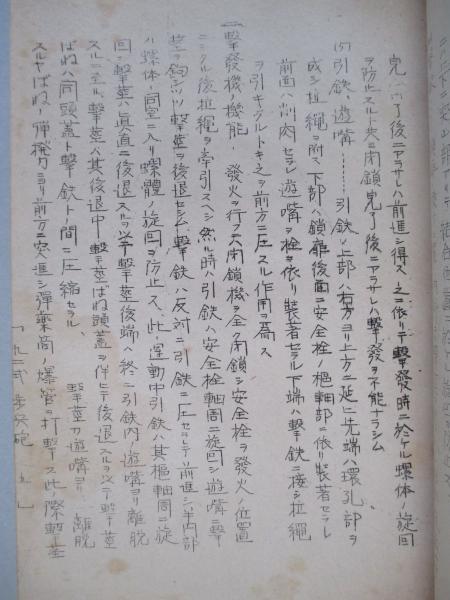 完了後ニアサレハ前進シ得ス之ニ依リテ撃發時ニ於ケル螺体ノ旋回
ヲ防止スルト共ニ閉鎖完了後ニアラサレハ撃發ヲ不能ナラシム
引鉄、遊嘴……引鉄ノ上部ハ右方ヨリ上方ニ延ヒ先端ハ環孔部ヲ
成シ拉縄ヲ附ス下部ハ鎖扉後面ニ安全栓ノ樞軸部ニ依リ装著セラレ
前面ハ削肉セラレ遊嘴ヲ栓ヲ依リ装著セラル下端ハ撃鉄ニ接シ拉縄
ヲ引キタルトキ之ヲ前方ニ圧スル作用ヲ為ス
撃發機ノ機能 發火ヲ行フニハ閉鎖機ヲ全ク閉鎖シ安全栓ヲ發火ノ位置
ニシタル後拉縄ヲ牽引スヘシ然ル時ハ引鉄ハ安全栓軸周ニ旋回シ遊嘴ニ撃
茎ヲ鈎シツヽ撃茎ヲ後退セシム撃鉄ハ反対ニ引鉄ニ圧セラレテ前進シ半内部
ハ螺体ノ同室ニ入リ螺體ノ旋回ヲ防止ス、此ノ運動中引鉄ハ其樞軸周ニ旋
回シ撃茎ハ真直ニ後退スルヲ以テ撃茎後端ハ終ニ引鉄内ノ遊嘴ヨリ離脱
スルニ至ル、撃茎ハ其後退中撃茎ばね頭蓋ヲ伴ヒテ後退スルヲ以テ撃茎
ばねハ同頭蓋ト撃鉄トノ間ニ圧縮セラル 撃茎カ遊嘴ヨリ離脱
スルヤばねノ弾撥力ニヨリ前方ニ突進シ彈藥筒ノ爆管ヲ打撃ス此ノ際撃茎
「九二式歩兵砲 九」